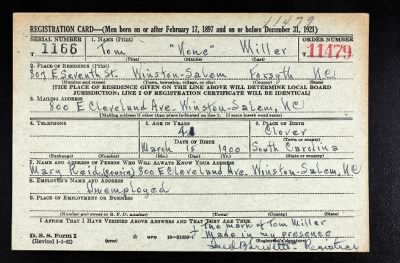 11479
REGISTRATION CARD—(Men born on or after February 17, 1897 and on or before December 31, 1921)
SERIAL NUMBER 1. NAME (Print) ORDER NUMBER
T 1166 Tom "None" Miller T 11479
(First) (Middle) (Last)
2. PLACE OF RESIDENCE (Print)
809 E Seventh St. Winston-Salem Forsyth N.C.
(Number and street) (Town, township, village, or city) (County) (State)
[THE PLACE OF RESIDENCE GIVEN ON THE LINE ABOVE WILL DETERMINE LOCAL BOARD
JURISDICTION; LINE 2 OF REGISTRATION CERTIFICATE WILL BE IDENTICAL]
3. MAILING ADDRESS
800 E Cleveland Ave. Winston-Salem, N.C.
[Mailing address if other than place indicated on line 2. If same insert word same]
4. TELEPHONE 5. AGE IN YEARS 6. PLACE OF BIRTH
41 Clover
DATE OF BIRTH (Town or county)
March 15 1900 South Carolina
(Exchange) (Number) (Mo.) (Day) (Yr.) (State or country)
7. NAME AND ADDRESS OF PERSON WHO WILL ALWAYS KNOW YOUR ADDRESS
Mary Reid (cousin) 800 E Cleveland Ave. Winston-Salem, N.C.
8. EMPLOYER'S NAME AND ADDRESS
Unemployed
9. PLACE OF EMPLOYMENT OR BUSINESS
(Number and street or R. F. D. number) (Town) (County) (State)
I AFFIRM THAT I HAVE VERIFIED ABOVE ANSWERS AND THAT THEY ARE TRUE.
The mark of Tom Miller
D. S. S. Form 1
(Revised 1-1-42) GPO Made in my presence
(Registrant's signature)
Registrar